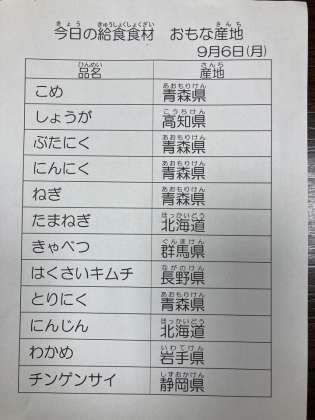 今日の給食食材　おもな産地
9月6日(月)
品名　産地
こめ　青森県
しょうが　高知県
ぶたにく　青森県
にんにく　青森県
ねぎ　青森県
たまねぎ　北海道
きゃべつ　群馬県
はくさいキムチ　長野県
とりにく　青森県
にんじん　北海道
わかめ　岩手県
チンゲンサイ　静岡県